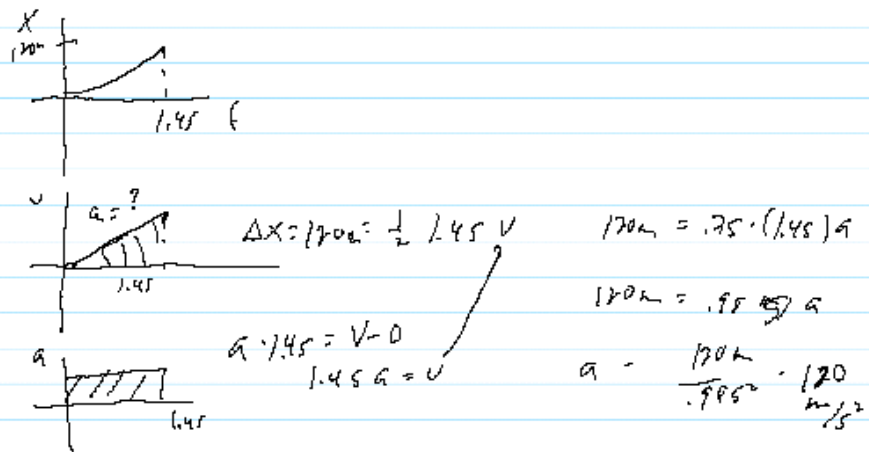 X
120m
1.4s t
v
a = ?
1.4s
ΔX = 120m = 1/2 1.4s V
120m = .7s · (1.4s) a
120m = .98 a
a · 1.4s = V - 0
1.4s a = v
a = 120m / .98s² = 120 m/s²
a
1.4s